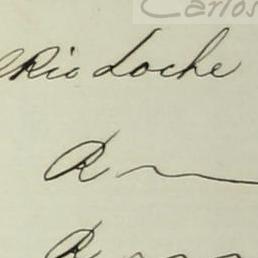 Carlos
Rio Loche
R
R